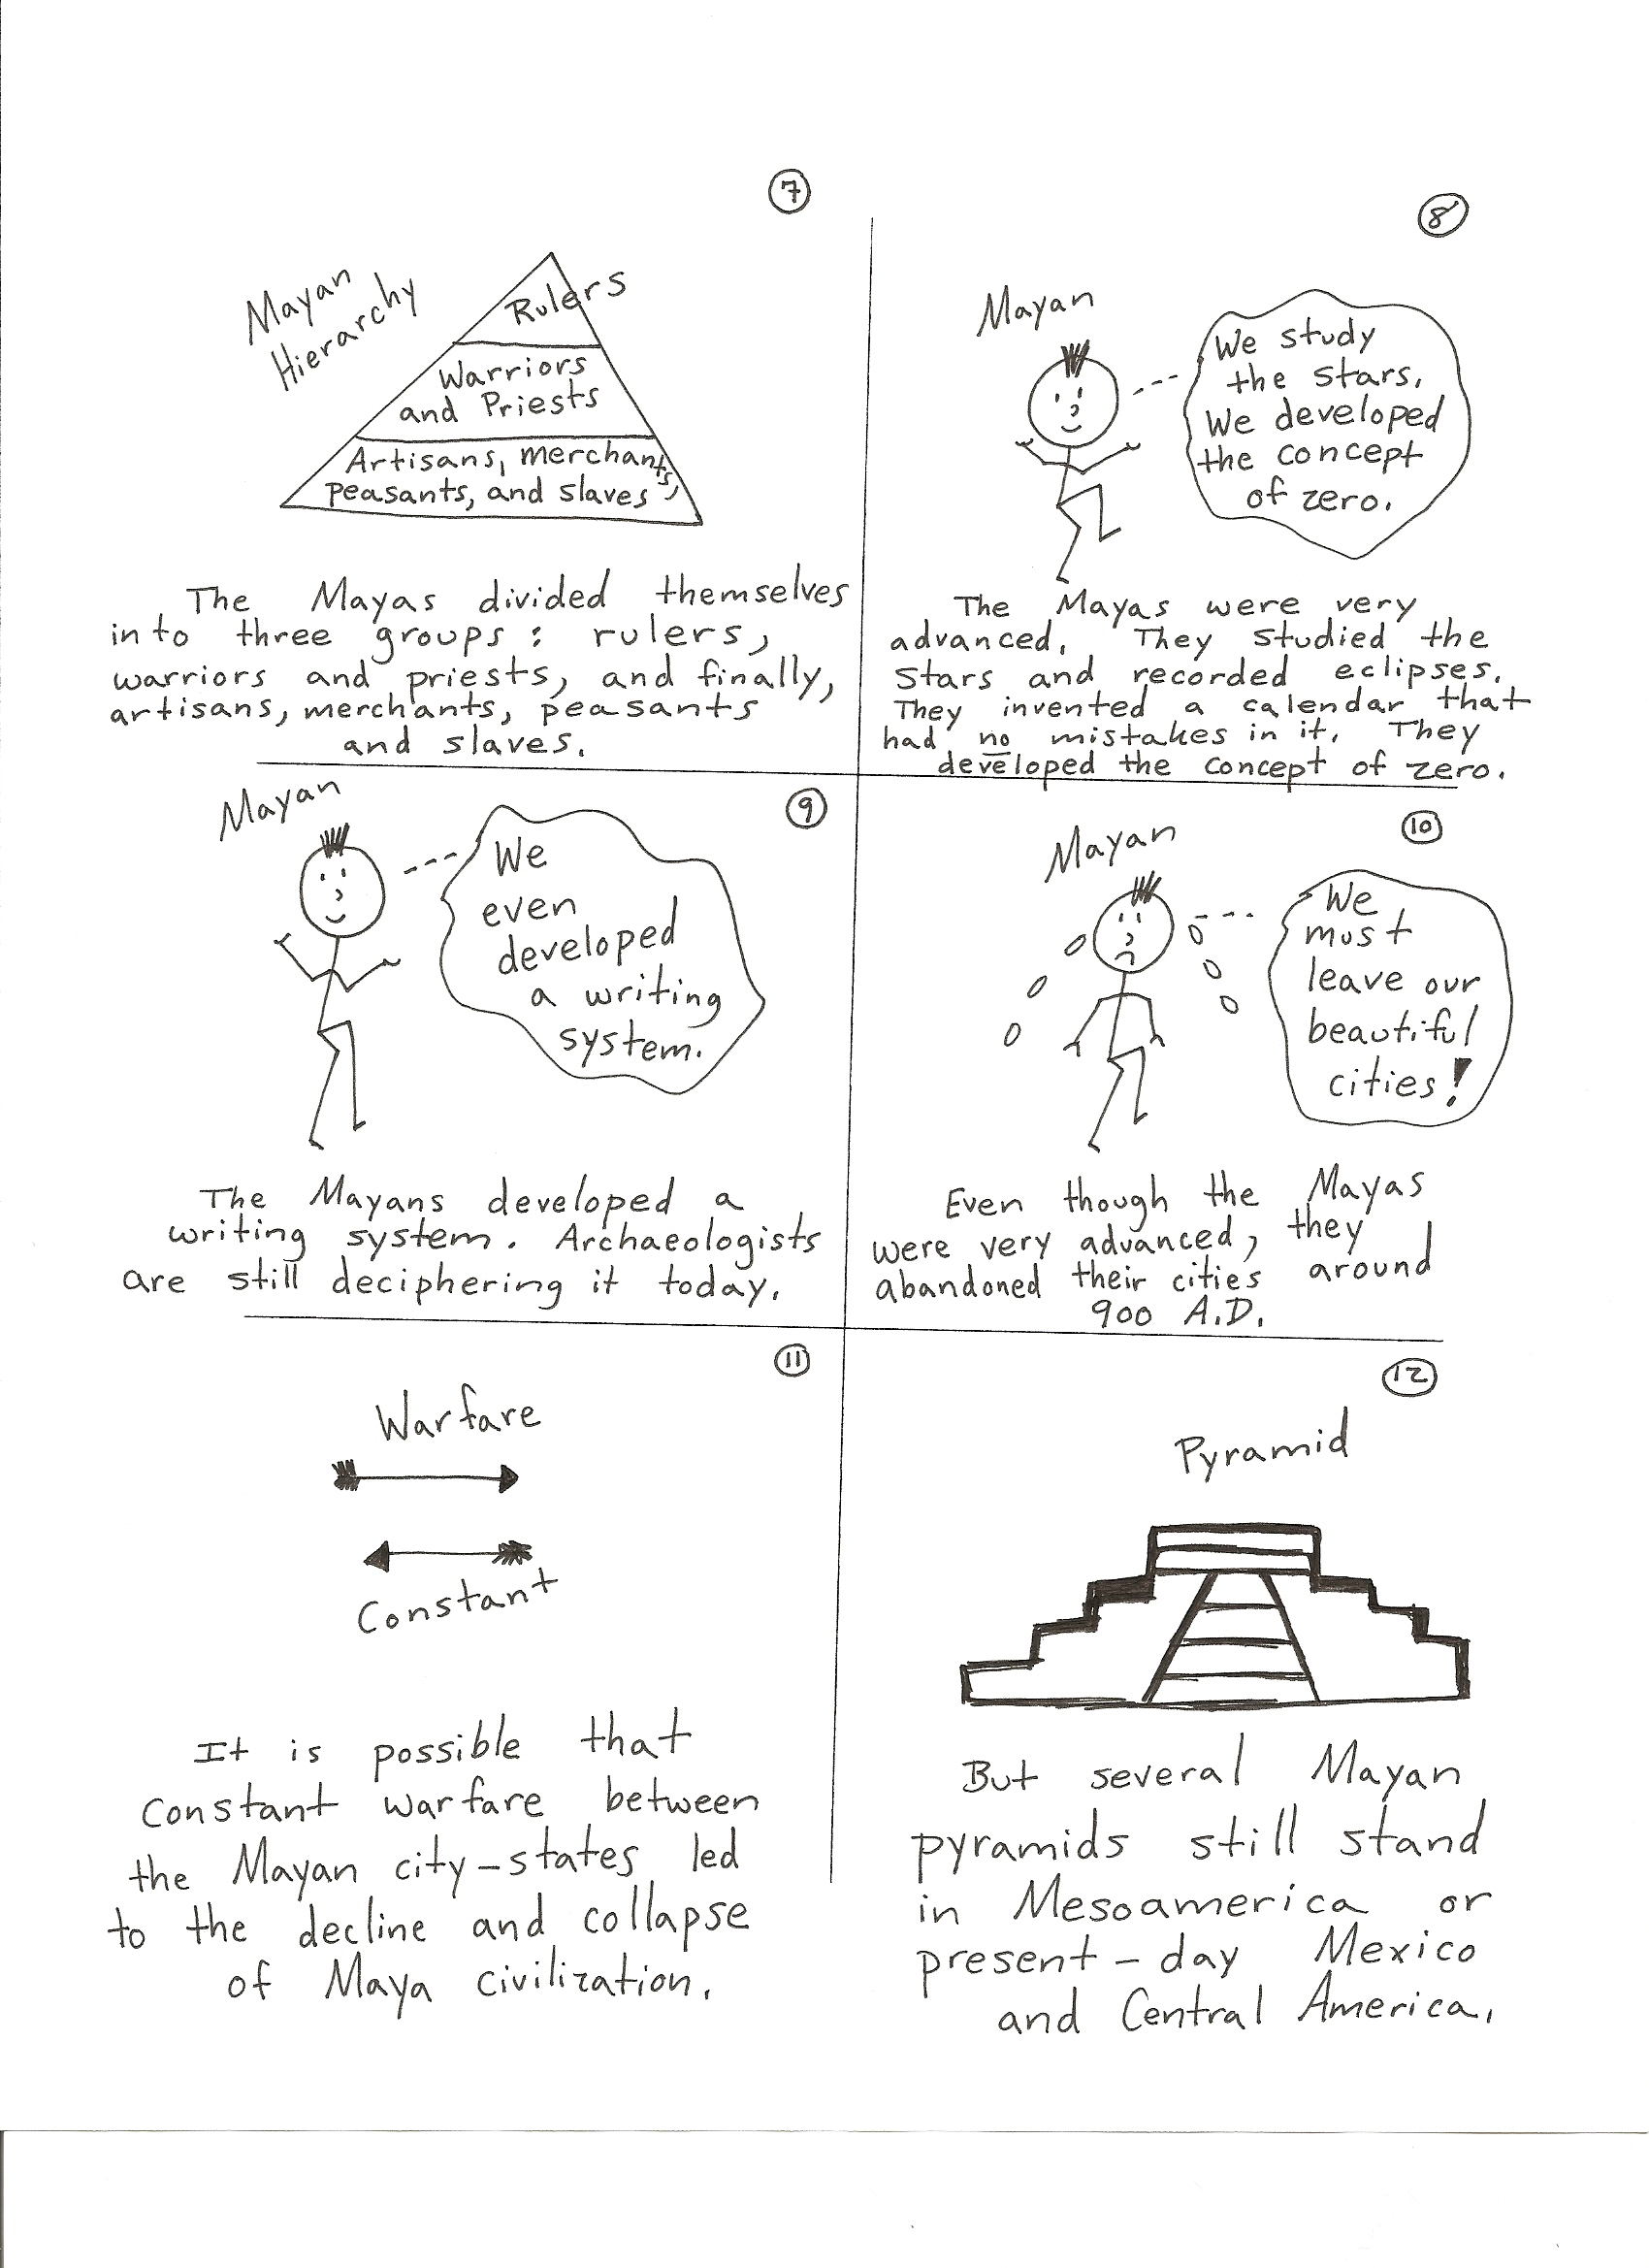 7
Mayan
Hierarchy
Rulers
Warriors
and Priests
Artisans, merchants,
peasants, and slaves
The Mayas divided themselves
into three groups: rulers,
warriors and priests, and finally,
artisans, merchants, peasants
and slaves.
8
Mayan
We study
the stars.
We developed
the concept
of zero.
The Mayas were very
advanced. They studied the
stars and recorded eclipses.
They invented a calendar that
had no mistakes in it. They
developed the concept of zero.
9
Mayan
We
even
developed
a writing
system.
The Mayans developed a
writing system. Archaeologists
are still deciphering it today.
10
Mayan
We
must
leave our
beautiful
cities!
Even though the Mayas
were very advanced, they
abandoned their cities around
900 A.D.
11
Warfare
Constant
It is possible that
constant warfare between
the Mayan city-states led
to the decline and collapse
of Maya civilization.
12
Pyramid
But several Mayan
pyramids still stand
in Mesoamerica or
present-day Mexico
and Central America.